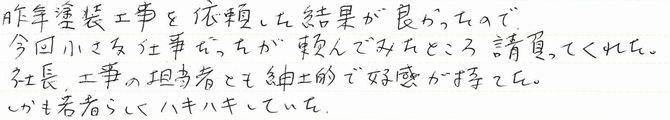 昨年塗装工事を依頼した結果が良かったので、
今回小さな仕事だったが頼んでみたところ請負ってくれた。
社長、工事の担当者とも紳士的で好感が持てた。
しかも若者らしくハキハキしていた。